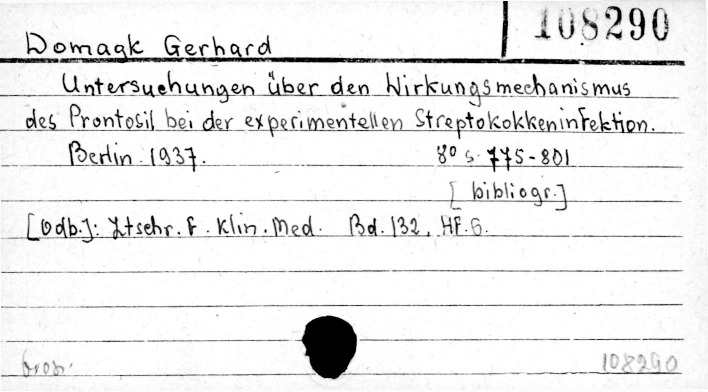 Domagk Gerhard
108290
Untersuchungen über den Wirkungsmechanismus
des Prontosil bei der experimentellen Streptokokkeninfektion.
Berlin 1937. 8° s. 775-801
[bibliogr.]
[Odb.]: Ztschr. f. klin. Med. Bd. 132, Hf. 6.
brosz.
108290